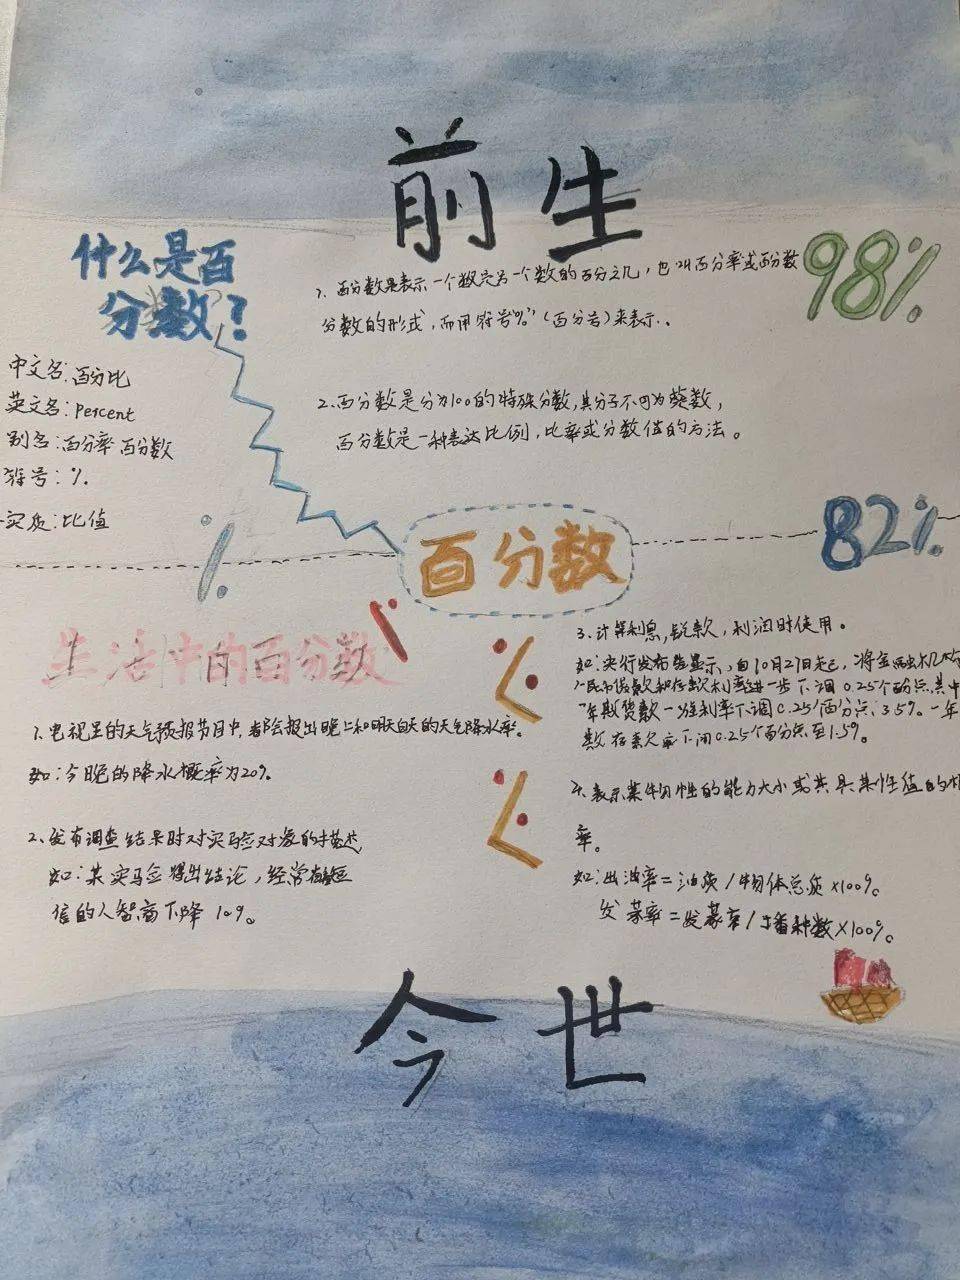 前生
什么是百
分数?
98%
1、百分数是表示一个数它另一个数的百分之几,也叫百分率或百分数
分数的形式,而用符号"%"(百分号)来表示。
中文名:百分比
英文名:Percent
别名:百分率 百分数
符号:%
实质:比值
2、百分数是分为100的特殊分数,其分子不可为
百分数是一种表达比例,比率或分数值的方法。
%
百分数
82%
生活中的百分数
1、电视里的天气预报节目中,都会报出晚上和明天白天的天气降水率。
如:今晚的降水概率为20%。
2、发布调查结果时对实验对象的描述
如:某实验得出结论,经常
信的人智商下降10%。
3、计算利息,税款,利润时使用。
如:央行发布 显示,自10月27日起,将金融机构
人民币贷款和存款利率进一步下调0.25个百分点,其中
一年期贷款 利率下调0.25个百分点,3.5%。一年
0.25个百分点至1.5%。
4、表示某物 性的能力大小或其具某性值的
率。
如:出油率=油质/物体总质×100%。
发芽率=发芽率/播种数×100%。
今世